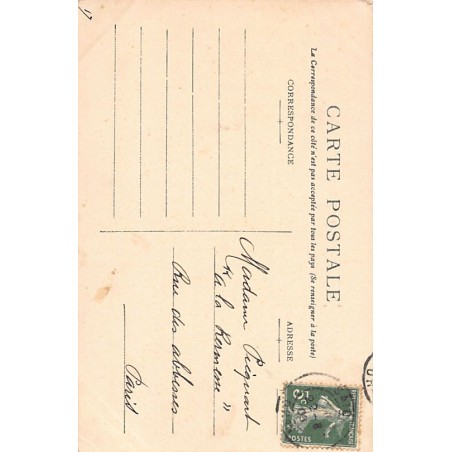 CARTE POSTALE
La Correspondance de ce côté n'est pas acceptée par tous les pays (Se renseigner à la poste)
CORRESPONDANCE
ADRESSE
Madame Picquart
"a la Kermesse"
Rue des abbesses
Paris
17
5c